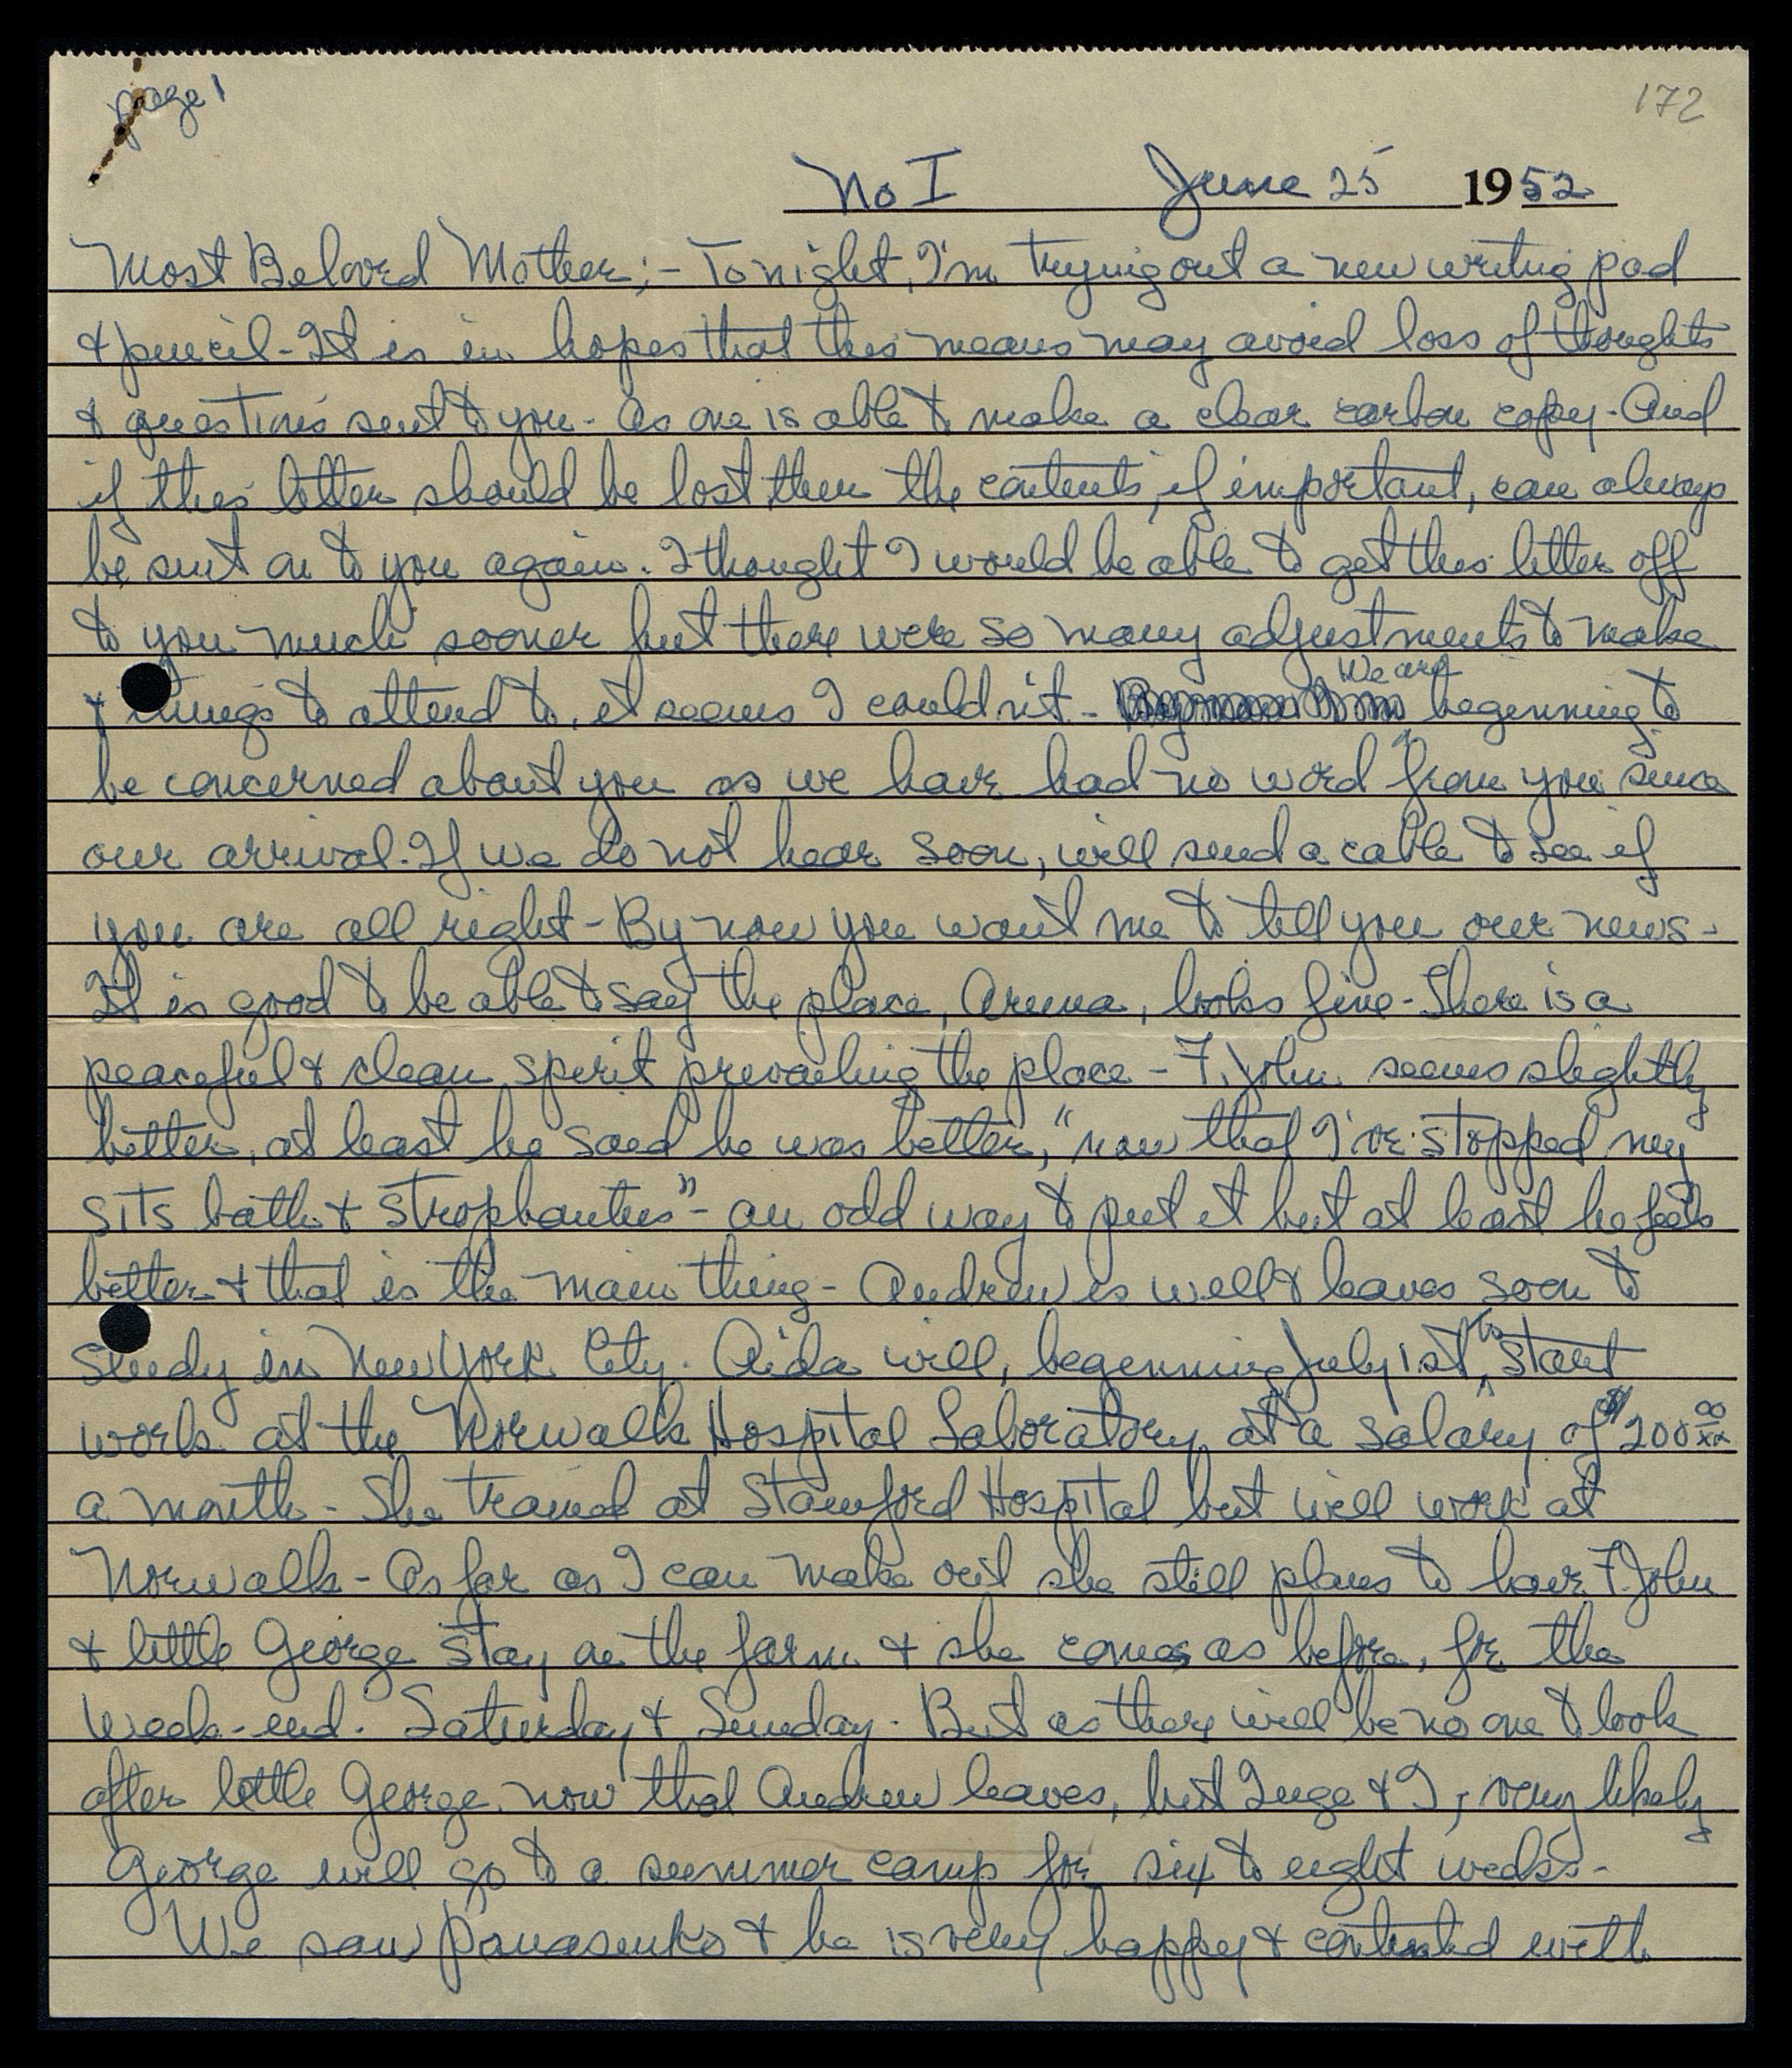 page 1
172
No I June 25 1952
Most Beloved Mother;- Tonight, I'm trying out a new writing pad
& pencil - It is in hopes that this means may avoid loss of thoughts
& questions sent to you - As one is able to make a clear carbon copy - And
if this letter should be lost then the contents, if important, can always
be sent on to you again. I thought I would be able to get this letter off
to you much sooner but there were so many adjustments to make
& things to attend to, it seems I couldn't - We are beginning to
be concerned about you as we have had no word from you since
our arrival. If we do not hear soon, will send a cable to see if
you are all right - By now you want me to tell you our news -
It is good to be able to say the place, Aruna, looks fine - There is a
peaceful & clean spirit prevailing the place - F. John seems slightly
better, at least he said he was better, "now that I've stopped my
sits bath & strophantus" - an odd way to put it but at least he feels
better & that is the main thing - Andrew is well & leaves soon to
study in New York City. Aida will, beginning July 1st, to start
work at the Norwalk Hospital Laboratory at a salary of $200 00/xx
a month - She trained at Stamford Hospital but will work at
Norwalk - As far as I can make out she still plans to have F. John
& little George stay on the farm & she comes as before, for the
week-end. Saturday & Sunday - But as there will be no one to look
after little George, now that Andrew leaves, but Inge & I, very likely
George will go to a summer camp for six to eight weeks -
We saw Panasenko & he is very happy & contented with